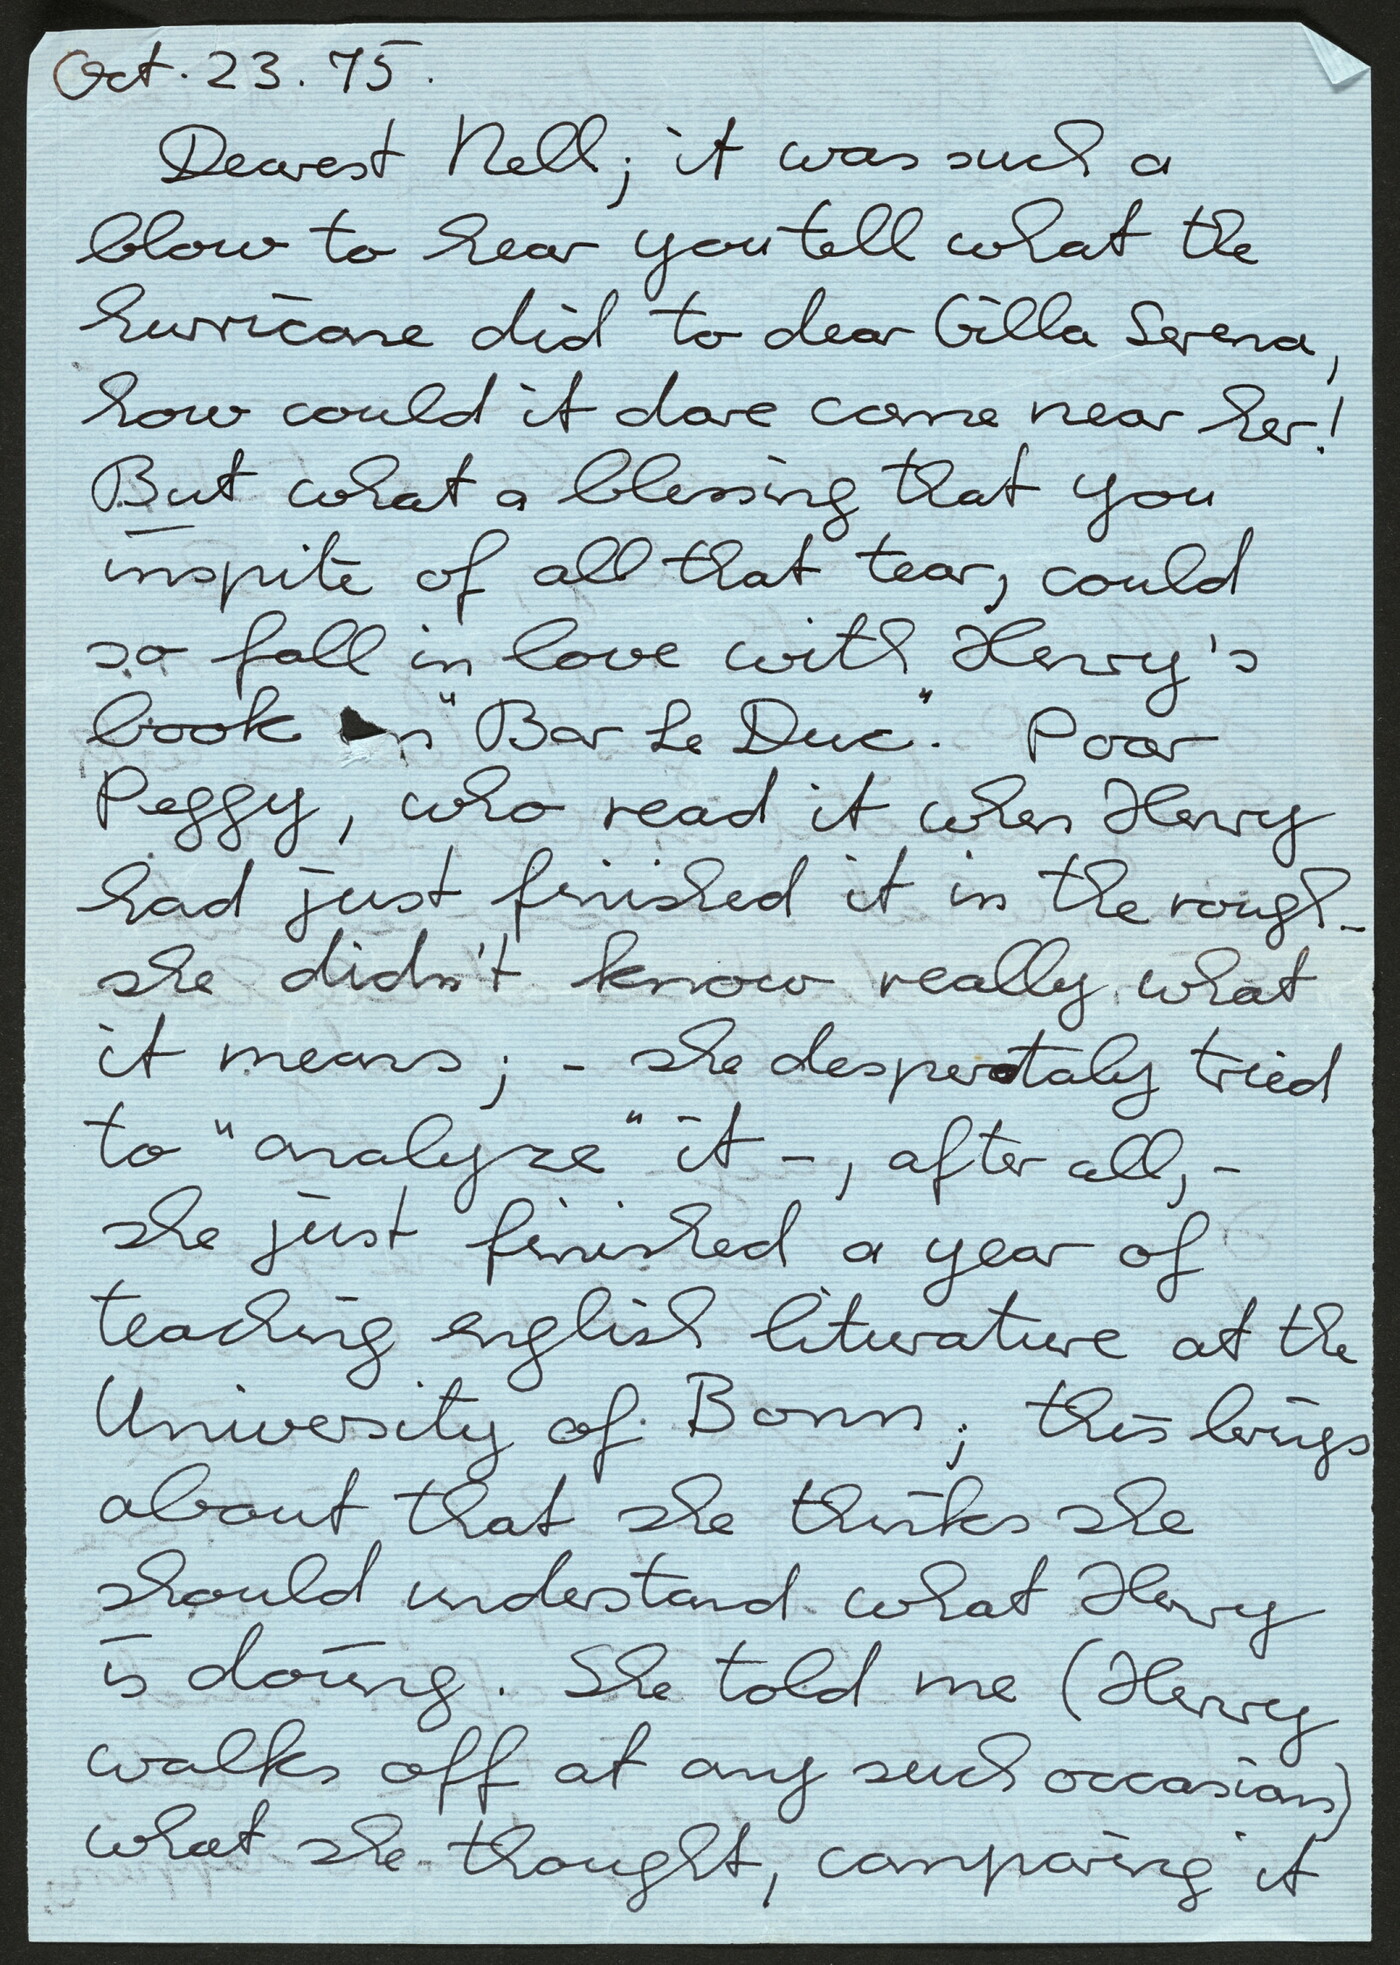 Oct. 23. 75.
Dearest Nell; it was such a
blow to hear you tell what the
hurricane did to dear Villa Serena,
how could it dare come near her!
But what a blessing that you
inspite of all that tear, could
so fall in love with Henry's
book "Bar Le Duc". Poor
Peggy, who read it when Henry
had just finished it in the rough -
she didn't know really what
it means; - she desperataly tried
to "analyze" it -, after all, -
she just finished a year of
teaching english literature at the
University of Bonn; this brings
about that she thinks she
should understand what Henry
is doing. She told me (Henry
walks off at any such occasions)
what she thought, comparing it